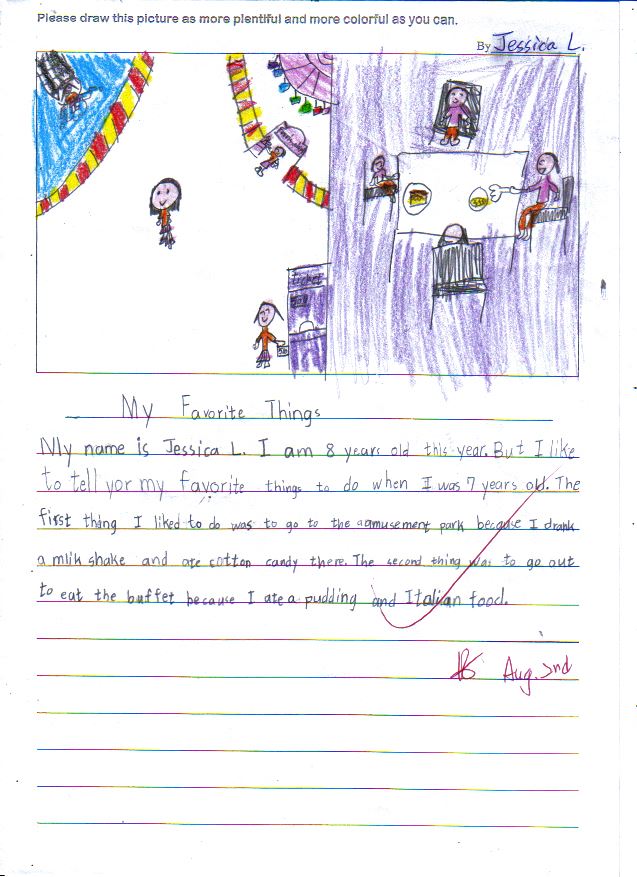 Please draw this picture as more plentiful and more colorful as you can.
By Jessica L.
ticket
My Favorite Things
My name is Jessica L. I am 8 years old this year. But I like
to tell yor my favorite things to do when I was 7 years old. The
first thing I liked to do was to go to the aamusement park because I drank
a mlik shake and ate cotton candy there. The second thing was to go out
to eat the buffet because I ate a pudding and Italian food.
Aug. 2nd